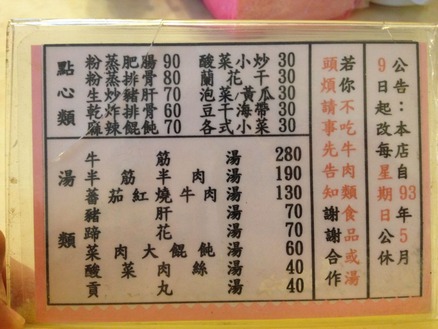 點心類
粉蒸肥腸 90 酸菜小炒 30
粉蒸排骨 80 蘭花干 30
生炒豬肝 70 泡菜黃瓜 30
乾炸排骨 60 豆干海帶 30
麻辣餛飩 70 各式小菜 30
湯類
牛筋湯 280
半筋半肉湯 190
蕃茄紅燒牛肉湯 130
豬肝湯 70
蹄花湯 70
菜肉大餛飩湯 60
酸菜肉絲湯 40
貢丸湯 40
公告:本店自93年5月
9日起改每星期日公休
若你不吃牛肉類食品或湯
頭煩請事先告知謝謝合作